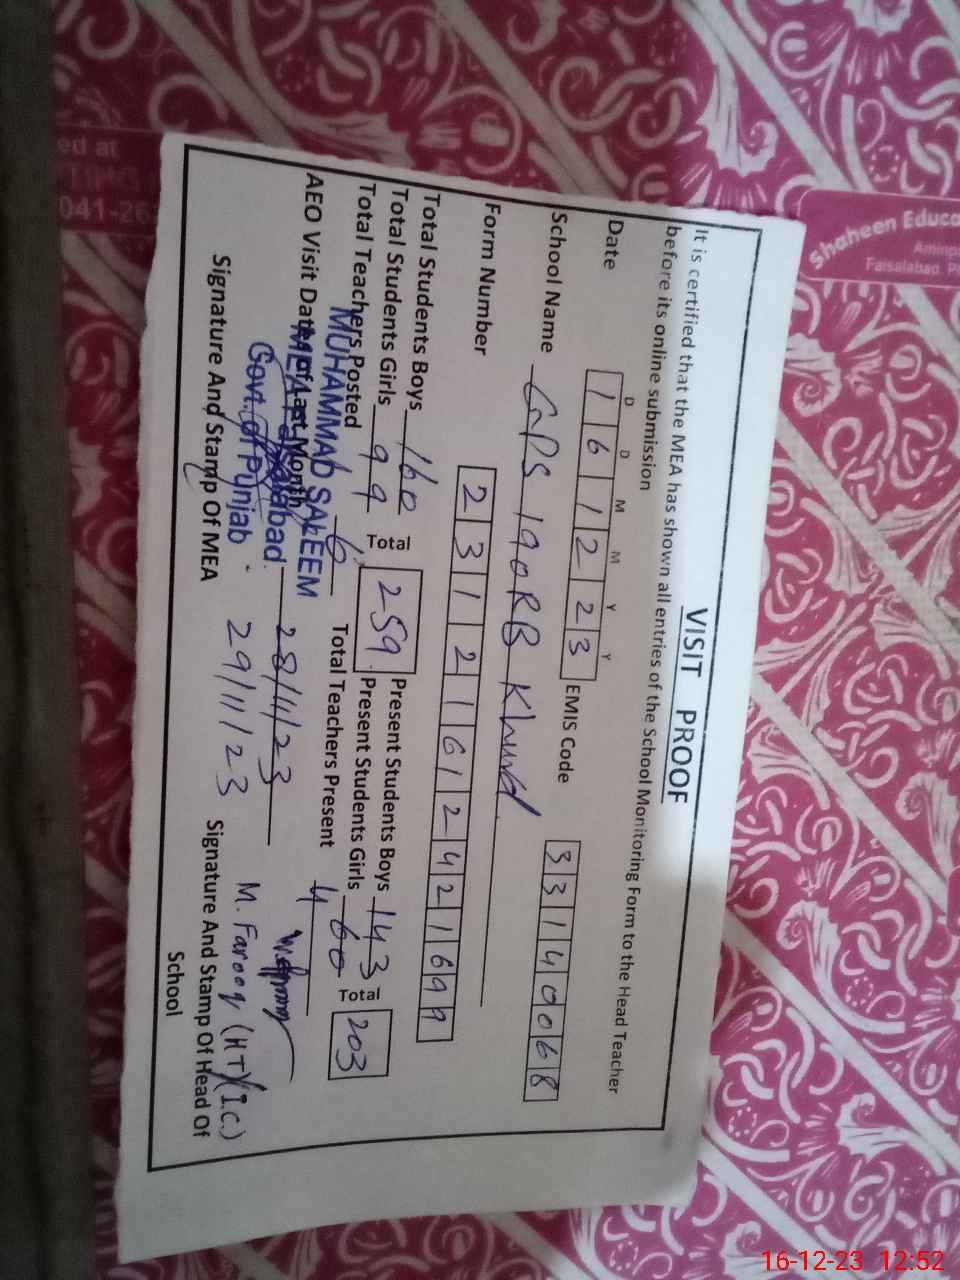 VISIT PROOF
It is certified that the MEA has shown all entries of the School Monitoring Form to the Head Teacher
before its online submission
D D M M Y Y
Date 1 6 1 2 2 3 EMIS Code 3 3 1 4 0 0 6 8
School Name GPS 190RB Khurd
Form Number 2 3 1 2 1 6 1 2 4 2 1 6 9 9
Total Students Boys 160 Total 259 Present Students Boys 143 Total 203
Total Students Girls 99 Present Students Girls 60
Total Teachers Posted 6 Total Teachers Present 4
MUHAMMAD SAkEEM
AEO Visit Date of Last Month 28/11/23
MEA Faisalabad.
Govt. of Punjab. 29/11/23 M. Farooq (HT)(I.C.)
Signature And Stamp Of MEA Signature And Stamp Of Head Of
School
Shaheen Educa
Aminp
Faisalabad P
ed at
TING
041-26
16-12-23 12:52